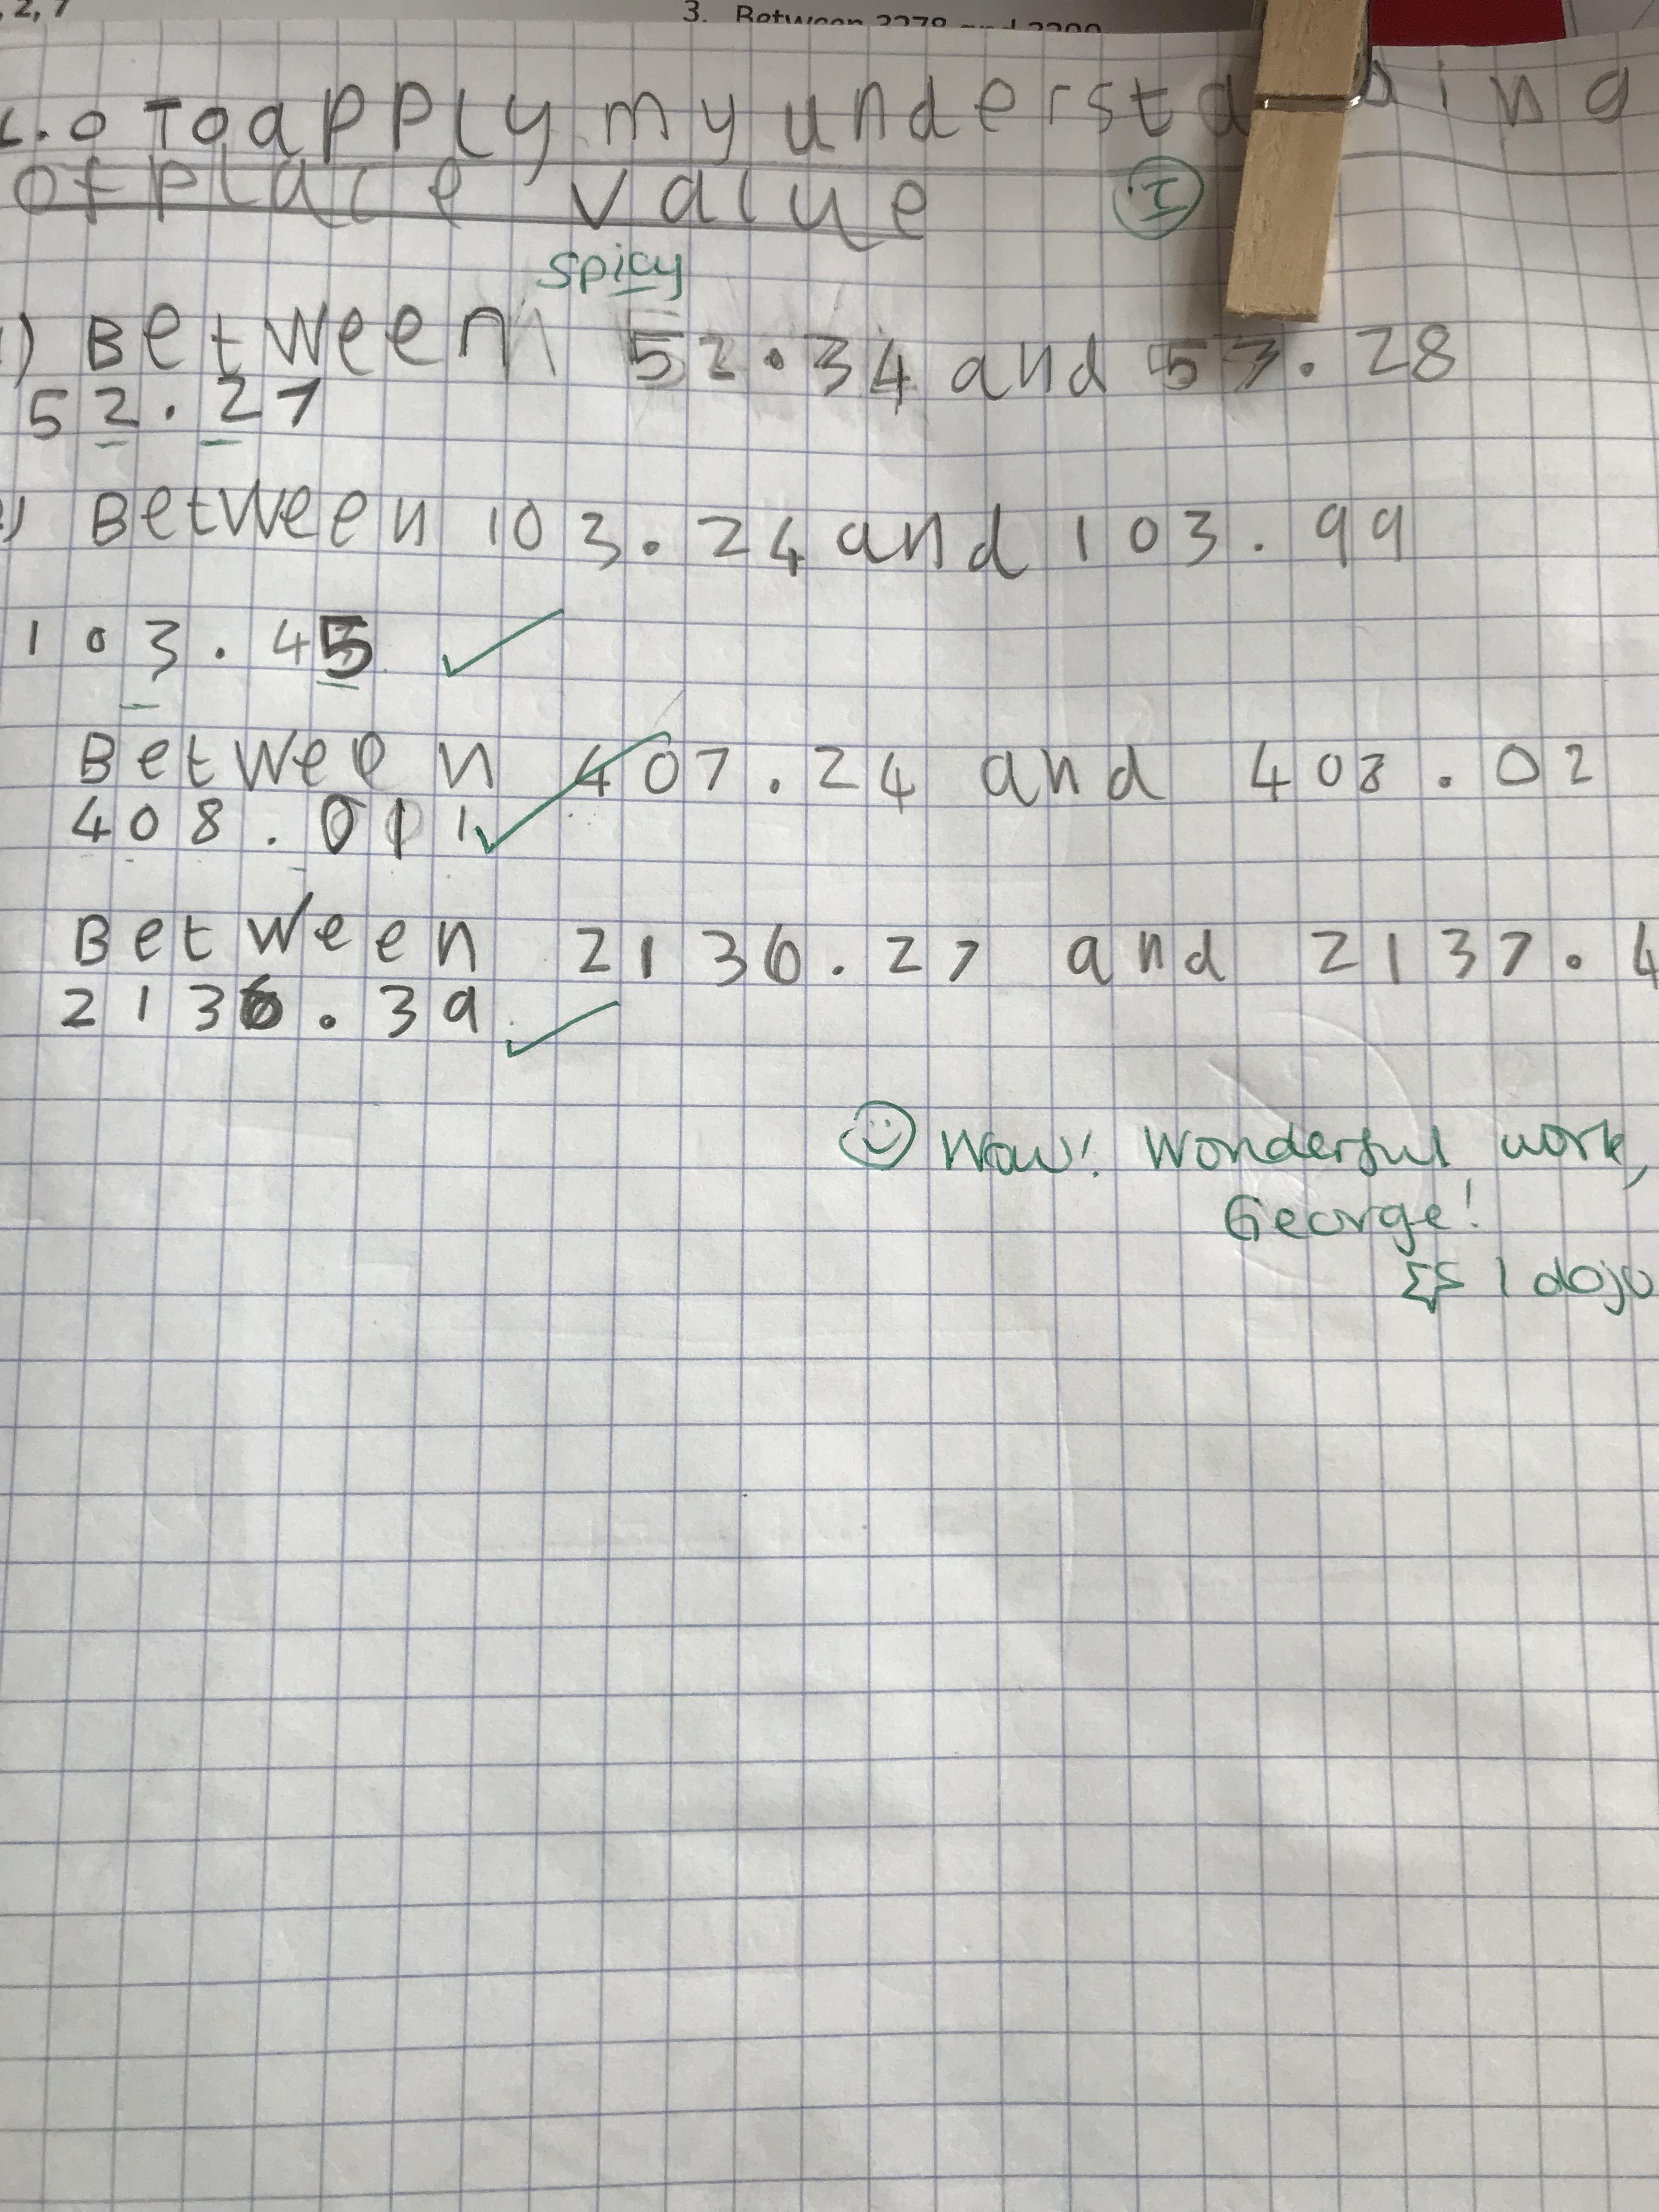 2, 7
3. Between 3278 and 3300
L.o To apply my understa ing
of place value
I
spicy
1) Between 52.34 and 53.28
52.27
Between 103.24 and 103.99
103.45
Between 407.24 and 408.02
408.011
Between 2136.27 and 2137.4
2136.39
Wow! Wonderful work,
George!
1 dojo